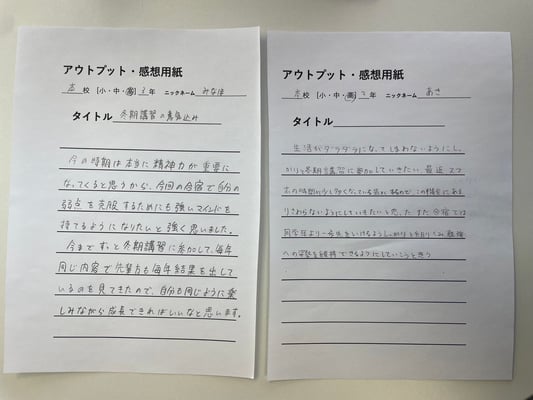 アウトプット・感想用紙
本校 [小・中・高] 3年 ニックネーム みなほ
タイトル 冬期講習の意気込み
今の時期は本当に精神力が重要に
なってくると思うから、今回の合宿で自分の
弱点を克服するためにも強いマインドを
持てるようになりたいと強く思いました。
今まで ずっと冬期講習に参加して、毎年
同じ内容で先輩方も毎年結果を出して
いるのを見てきたので、自分も同じように楽
しみながら成長できればいいなと思います。
アウトプット・感想用紙
本校 [小・中・高] 2年 ニックネーム あき
タイトル
生活がダラダラになってしまわないようにし
かりと冬期講習に参加していきたい。最近 スマ
ホの時間が少し多くなっている
さわらないようにしていきたいと思った。また 合宿では
同学年より一歩先をいけるようしっかりと 勉強
への姿勢を維持できるようにしていこうと思う